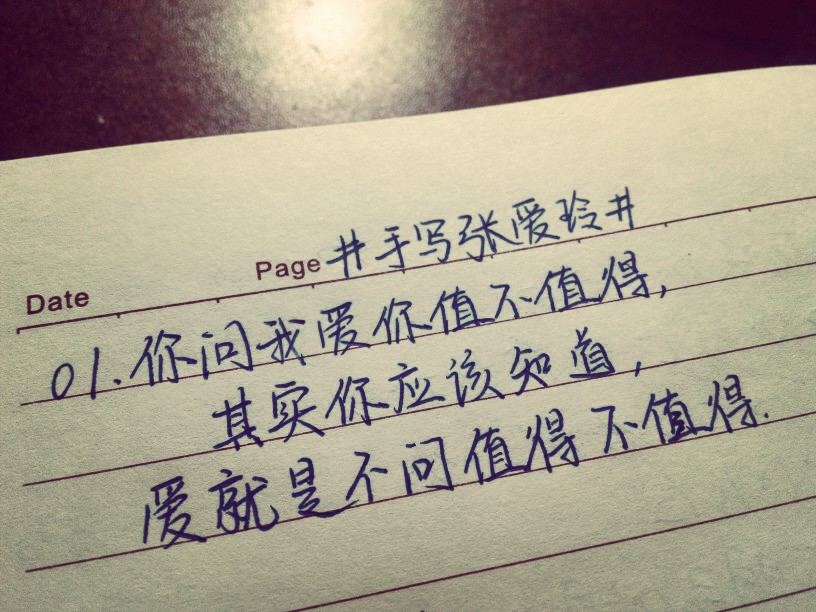 Date Page #手写张爱玲#
01.你问我爱你值不值得,
其实你应该知道,
爱就是不问值得不值得.